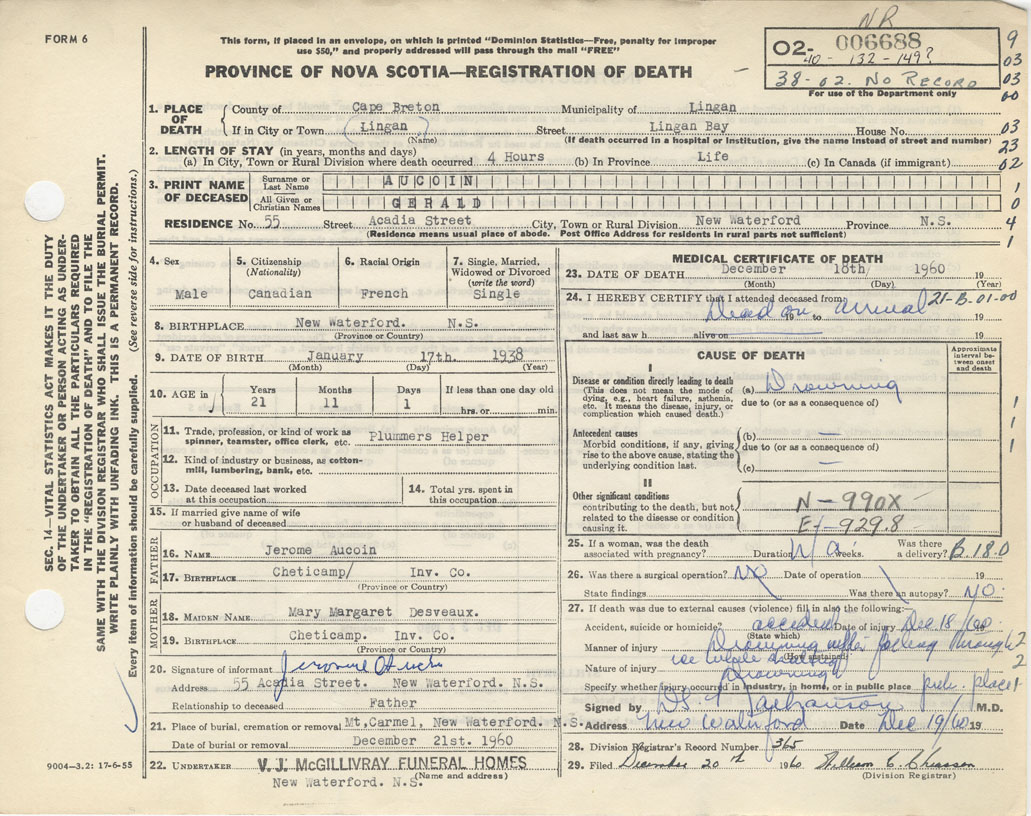 NR
FORM 6
This form, if placed in an envelope, on which is printed "Dominion Statistics—Free, penalty for improper
use $50," and properly addressed will pass through the mail "FREE"
PROVINCE OF NOVA SCOTIA—REGISTRATION OF DEATH
02- 006688
40 - 132 - 149?
38-02. No RECORD
For use of the Department only
9
03
03
00
03
23
02
1
0
4
1
SEC. 14—VITAL STATISTICS ACT MAKES IT THE DUTY
OF THE UNDERTAKER OR PERSON ACTING AS UNDER-
TAKER TO OBTAIN ALL THE PARTICULARS REQUIRED
IN THE "REGISTRATION OF DEATH" AND TO FILE THE
SAME WITH THE DIVISION REGISTRAR WHO SHALL ISSUE THE BURIAL PERMIT.
WRITE PLAINLY WITH UNFADING INK. THIS IS A PERMANENT RECORD.
Every item of information should be carefully supplied. (See reverse side for instructions.)
1. PLACE OF DEATH
County of Cape Breton Municipality of Lingan
If in City or Town (Lingan) Street Lingan Bay House No.
(Name) (If death occurred in a hospital or institution, give the name instead of street and number)
2. LENGTH OF STAY (in years, months and days)
(a) In City, Town or Rural Division where death occurred 4 Hours (b) In Province Life (c) In Canada (if immigrant)
3. PRINT NAME OF DECEASED
Surname or Last Name AUCOIN
All Given or Christian Names GERALD
RESIDENCE No. 55 Street Acadia Street City, Town or Rural Division New Waterford Province N.S.
(Residence means usual place of abode. Post Office Address for residents in rural parts not sufficient)
4. Sex Male
5. Citizenship (Nationality) Canadian
6. Racial Origin French
7. Single, Married, Widowed or Divorced (write the word) Single
8. BIRTHPLACE New Waterford. N.S.
(Province or Country)
9. DATE OF BIRTH January 17th. 1938
(Month) (Day) (Year)
10. AGE in Years 21 Months 11 Days 1 If less than one day old hrs. or min.
OCCUPATION
11. Trade, profession or kind of work as spinner, teamster, office clerk, etc. Plummers Helper
12. Kind of industry or business, as cotton-mill, lumbering, bank, etc.
13. Date deceased last worked at this occupation
14. Total yrs. spent in this occupation
15. If married give name of wife or husband of deceased
FATHER
16. NAME Jerome Aucoin
17. BIRTHPLACE Cheticamp/ Inv. Co.
(Province or Country)
MOTHER
18. MAIDEN NAME Mary Margaret Desveaux.
19. BIRTHPLACE Cheticamp. Inv. Co.
(Province or Country)
20. Signature of informant Jerome Aucoin
Address 55 Acadia Street. New Waterford. N.S.
Relationship to deceased Father
21. Place of burial, cremation or removal Mt,Carmel, New Waterford. N.S.
Date of burial or removal December 21st. 1960
22. UNDERTAKER V. J. McGILLIVRAY FUNERAL HOMES
(Name and address)
New Waterford. N.S.
9004—3.2: 17-6-55
MEDICAL CERTIFICATE OF DEATH
23. DATE OF DEATH December 18th 1960 19
(Month) (Day) (Year)
24. I HEREBY CERTIFY that I attended deceased from 21-B-01-00
Dead on arrival
19 to 19
and last saw h alive on 19
CAUSE OF DEATH
Approximate interval between onset and death
I
Disease or condition directly leading to death
(This does not mean the mode of dying, e.g., heart failure, asthenia, etc. It means the disease, injury, or complication which caused death.)
(a) Drowning
due to (or as a consequence of)
Antecedent causes
Morbid conditions, if any, giving rise to the above cause, stating the underlying condition last.
(b) —
due to (or as a consequence of)
(c) —
1
1
1
II
Other significant conditions contributing to the death, but not related to the disease or condition causing it.
N - 990X
E+ - 929.8
25. If a woman, was the death associated with pregnancy? Duration N/A weeks. Was there a delivery? B.18.0
26. Was there a surgical operation? NO Date of operation 19
State findings Was there an autopsy? NO.
27. If death was due to external causes (violence) fill in also the following:—
Accident, suicide or homicide? accident Date of injury Dec 18/60 19
(State which)
Manner of injury Drowning after falling through 2
ice while skating
(How sustained)
Nature of injury Drowning 2
Specify whether injury occurred in industry, in home, or in public place pub. place 1
Signed by M.D.
Address New Waterford Date Dec 19/60 19
28. Division Registrar's Record Number 365
29. Filed December 20th 1960 William C. Chiasson
(Division Registrar)